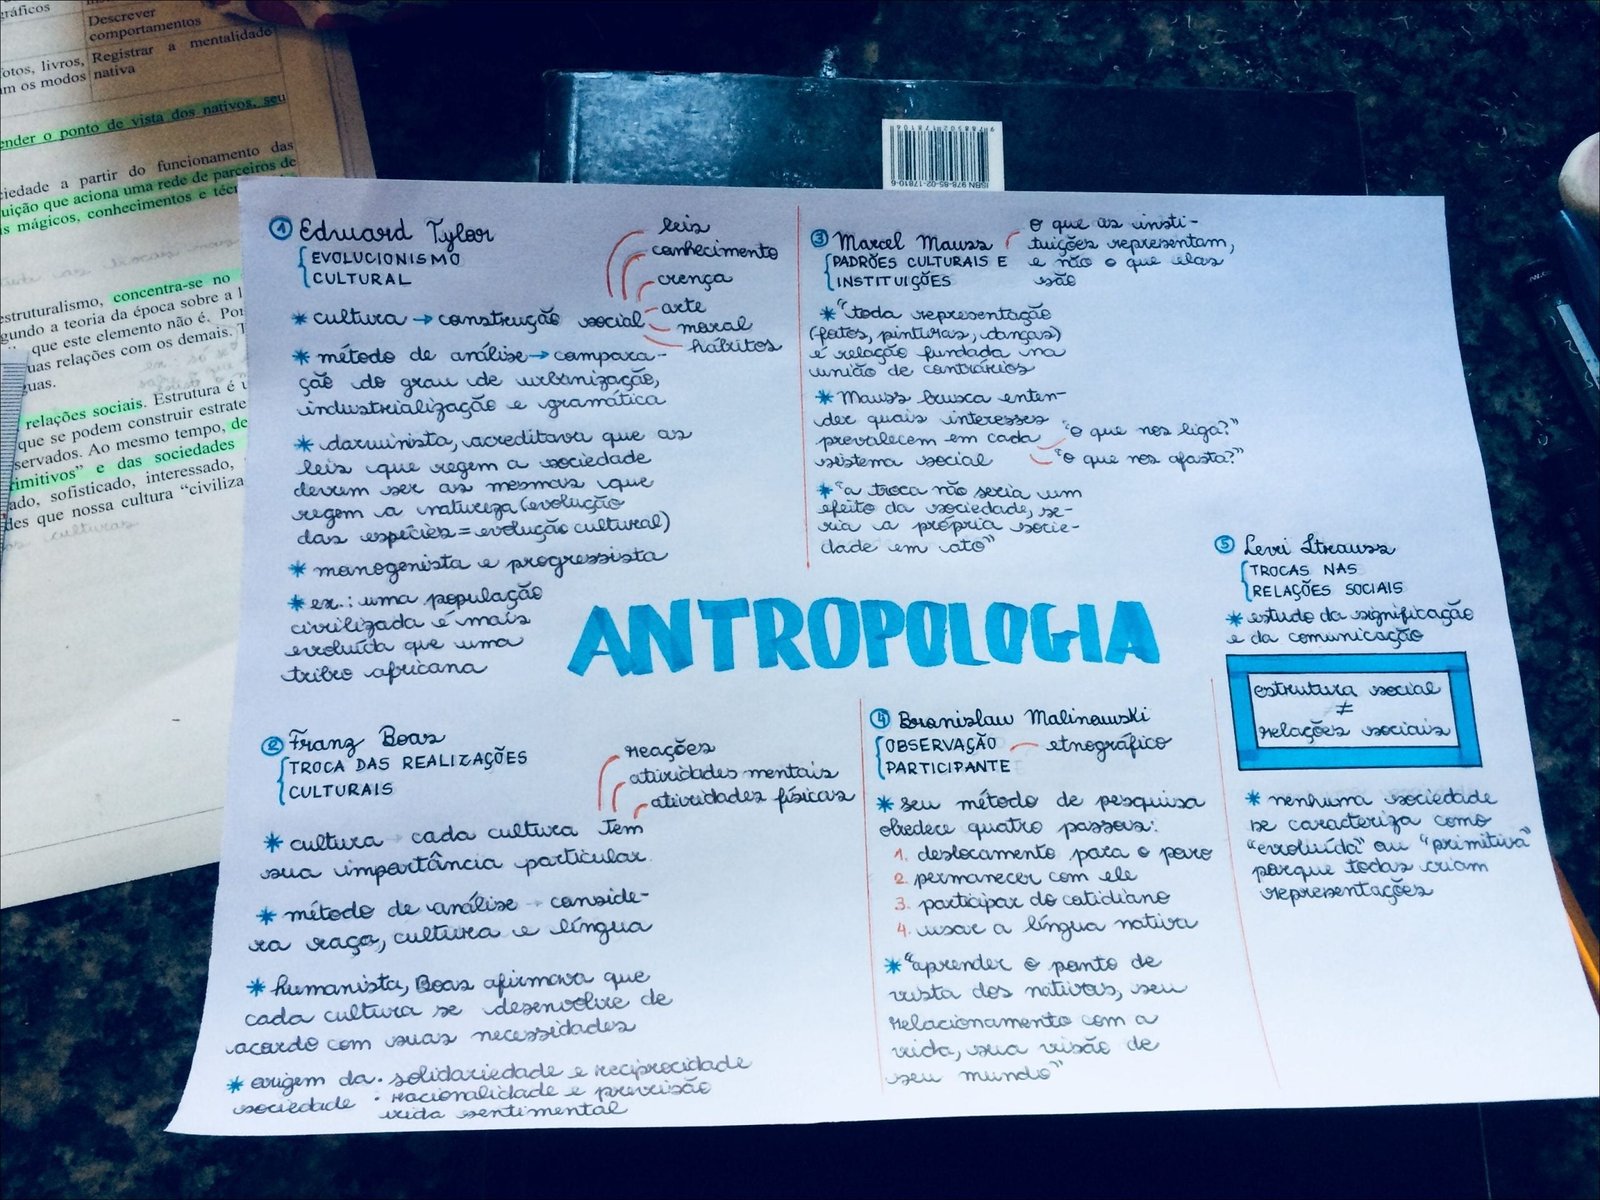 gráficos
Descrever
comportamentos
fotos, livros,
Registrar a mentalidade
am os modos
nativa
ender o ponto de vista dos nativos, seu
ciedade a partir do funcionamento das
uição que aciona uma rede de parceiros de
s mágicos, conhecimentos e
estruturalismo, concentra-se no
gundo a teoria da época sobre a
que este elemento não é. Por
uas relações com os demais.
guas.
relações sociais. Estrutura é
que se podem construir
servados. Ao mesmo tempo, de
rimitivos" e das sociedades
ado, sofisticado, interessado,
des que nossa cultura "civiliza
culturas
9788502178106
ISBN 978-85-02-17810-6
① Edward Tylor
EVOLUCIONISMO
CULTURAL
* cultura → construção social
leis
conhecimento
crença
arte
moral
hábitos
* método de análise → compara-
ção do grau de urbanização,
industrialização e gramática
* darwinista, acreditava que as
leis que regem a sociedade
devem ser as mesmas que
regem a natureza (evolução
das espécies = evolução cultural)
* monogenista e progressista
* ex.: uma população
civilizada é mais
evoluída que uma
tribo africana
② Franz Boas
TROCA DAS REALIZAÇÕES
CULTURAIS
reações
atividades mentais
atividades físicas
* cultura → cada cultura tem
sua importância particular.
* método de análise → conside-
ra raça, cultura e língua
* humanista, Boas afirmava que
cada cultura se desenvolve de
acordo com suas necessidades
* origem da · solidariedade e reciprocidade
sociedade · racionalidade e previsão
vida sentimental
③ Marcel Mauss
PADRÕES CULTURAIS E
INSTITUIÇÕES
o que as insti-
tuições representam,
e não o que elas
são
* "toda representação
(fotos, pinturas, danças)
é relação fundada na
união de contrários
* Mauss busca enten-
der quais interesses
prevalecem em cada
sistema social
"o que nos liga?"
"o que nos afasta?"
* "a troca não seria um
efeito da sociedade, se-
ria a própria socie-
dade em ato"
ANTROPOLOGIA
④ Bronislaw Malinowski
OBSERVAÇÃO
PARTICIPANTE
etnográfico
* seu método de pesquisa
obedece quatro passos:
1. deslocamento para o povo
2. permanecer com ele
3. participar do cotidiano
4. usar a língua nativa
* "aprender o ponto de
vista dos nativos, seu
relacionamento com a
vida, sua visão de
seu mundo"
⑤ Levi Strauss
TROCAS NAS
RELAÇÕES SOCIAIS
* estudo da significação
e da comunicação
estrutura social
≠
relações sociais
* nenhuma sociedade
se caracteriza como
"evoluída" ou "primitiva"
porque todas criam
representações